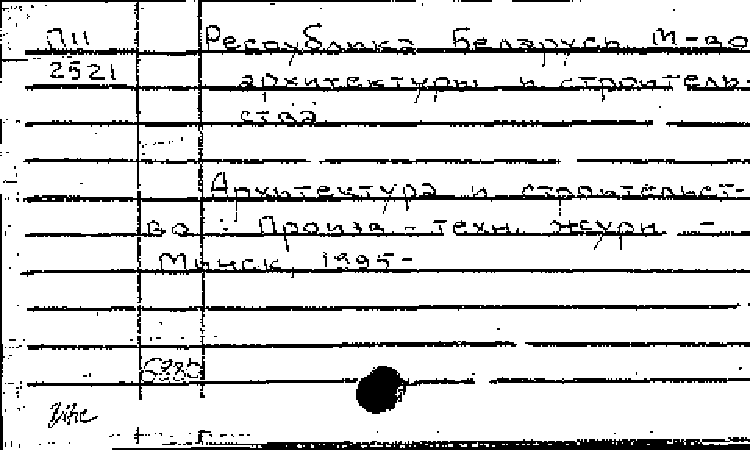 П11 Республика Беларусь. М-во
2521 архитектуры и строитель-
ства.
Архитектура и строительст-
во : Произв.-техн. журн. -
Минск, 1995-